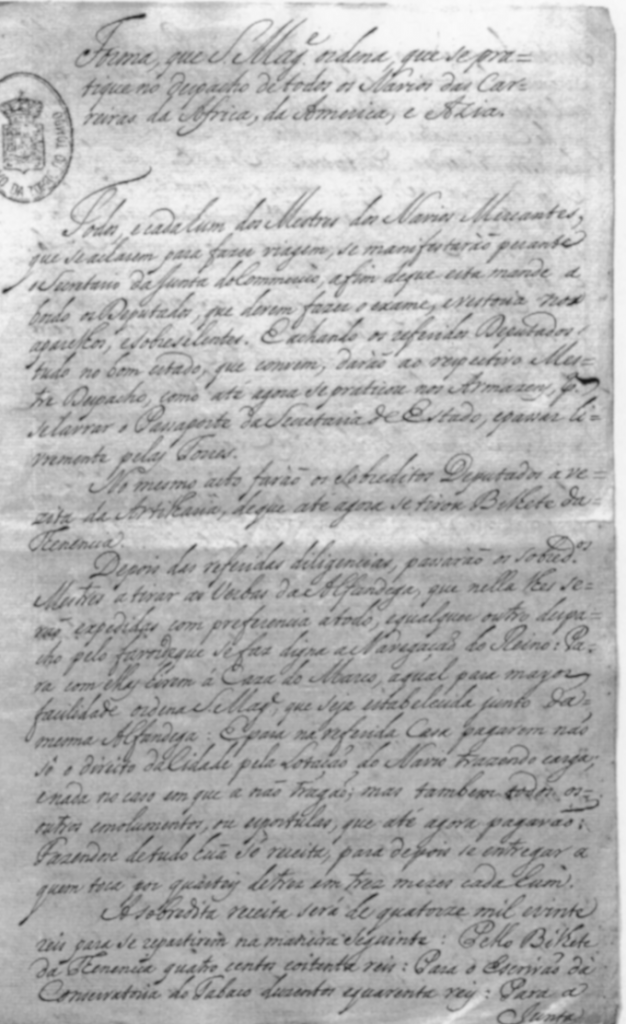 Forma, que S Mag.e ordena, que se pra=
tique no despacho de todos os Navios das Car=
reiras da Africa, da America, e Azia.
Todos, e cada hum dos Mestres dos Navios Mercantes,
que se acharem para fazer viagem, se manifestarão perante
o Secretario da Junta do Commercio, a fim de que esta mande a
bordo os Deputados, que devem fazer o exame, e vestoria nos
aparelhos, e sobreselentes. E achando os referidos Deputados
tudo no bom estado, que convem, darão ao respectivo Mes=
tre Despacho, como até agora se praticou nos Armazens, p.a
se lavrar o Passaporte da Secretaria de Estado, e passar li=
vremente pelas Torres.
No mesmo acto farão os sobreditos Deputados a ve=
zita da Artilharia, de que até agora se tirou Bilhete da
Tenencia.
Depois das referidas diligencias, passarão os sobred.os
Mestres a tirar as Verbas da Alfandega, que nella lhes se=
rão expedidas com preferencia a todo, e qualquer outro despa=
cho pelo favor de que se faz digna a Navegação do Reino: Pa=
ra com ellas hirem á Caza do Marco, a qual para mayor
facilidade ordena S Mag.e, que seja estabelecida junto da
mesma Alfandega: E para na referida Casa pagarem não
só o direito da Cidade pela Lotação do Navio trazendo carga,
e nada no caso em que a não tragão; mas tambem todos os
outros emolumentos, ou esportulas, que até agora pagarão:
Fazendose de tudo huã só receita, para depois se entregar a
quem toca por quarteis de trez em trez mezes cada hum.
A sobredita receita será de quatorze mil e vinte
reis para se repartirem na maneira seguinte: Pello Bilhete
da Tenencia quatro centos e oitenta reis: Para o Escrivão da
Conservatoria do Tabaco duzentos e quarenta reis: Para a
Junta